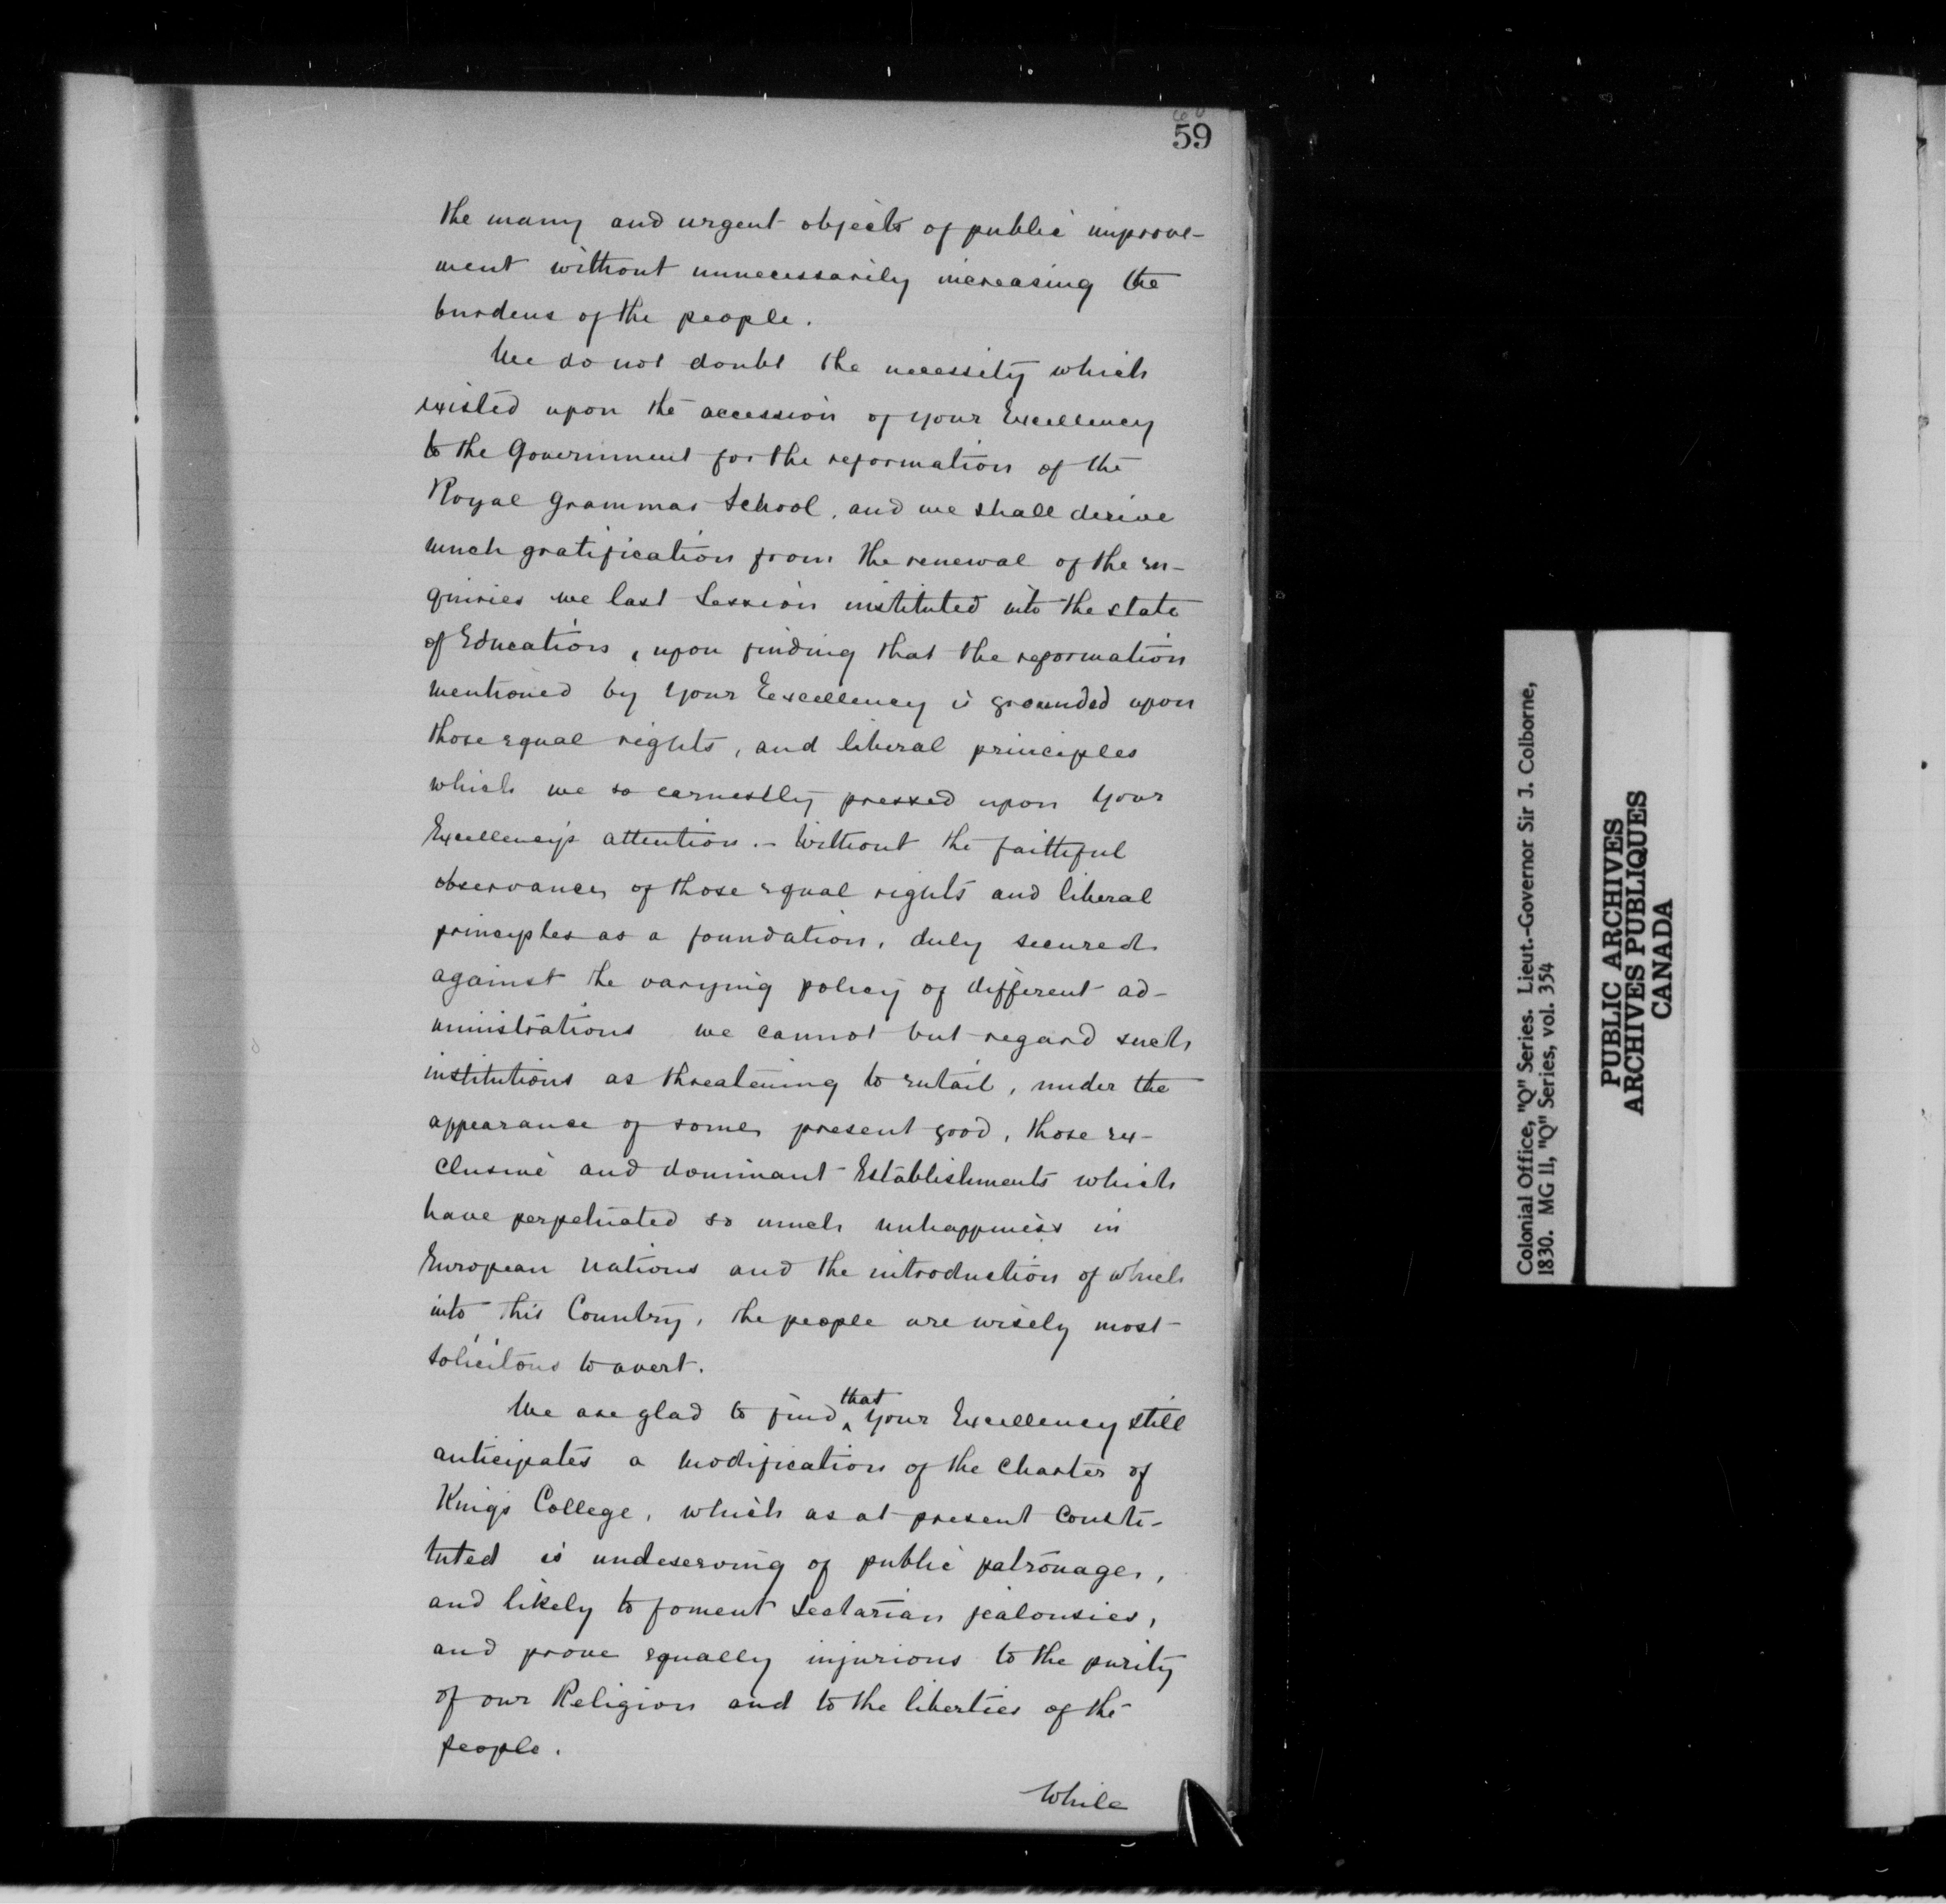 59
the many and urgent objects of public improve-
ment without unnecessarily increasing the
burdens of the people.
We do not doubt the necessity which
existed upon the accession of your Excellency
to the Government for the reformation of the
Royal Grammar School, and we shall derive
much gratification from the renewal of the en-
quiries we last Session instituted into the state
of Education, upon finding that the reformation
mentioned by Your Excellency is grounded upon
those equal rights, and liberal principles
which we so earnestly pressed upon Your
Excellency's attention. - Without the faithful
observance of those equal rights and liberal
principles as a foundation, duly secured
against the varying policy of different ad-
ministrations we cannot but regard such
institutions as threatening to entail, under the
appearance of some present good, those ex-
clusive and dominant Establishments which
have perpetuated so much unhappiness in
European Nations and the introduction of which
into this Country, the people are wisely most
solicitous to avert.
We are glad to find that Your Excellency still
anticipates a modification of the Charter of
King's College, which as at present consti-
tuted is undeserving of public patronage,
and likely to foment Sectarian jealousies,
and prove equally injurious to the purity
of our Religion and to the liberties of the
people.
While
Colonial Office, "Q" Series. Lieut.-Governor Sir J. Colborne,
1830. MG 11, "Q" Series, vol. 354
PUBLIC ARCHIVES
ARCHIVES PUBLIQUES
CANADA